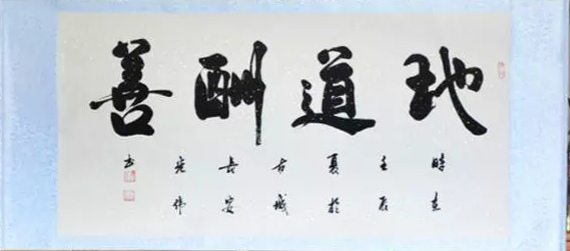 地道酬善
時在
壬辰
夏於
古城
長安
光伟
书